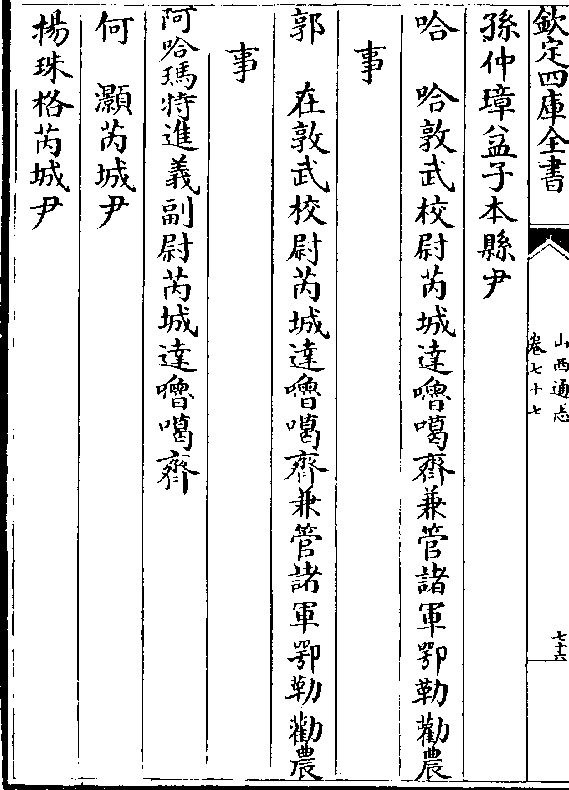 欽定四庫全書
山西通志
卷七十七
七十六
孫仲璋盆子本縣尹
哈　哈敦武校尉芮城達嚕噶齊兼管諸軍鄂勒勸農
事
郭　在敦武校尉芮城達嚕噶齊兼管諸軍鄂勒勸農
事
阿哈瑪特進義副尉芮城達嚕噶齊
何　灝芮城尹
揚珠格芮城尹